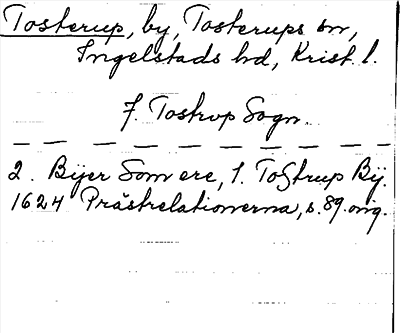 Tosterup, by, Tosterups sn,
Ingelstads hd, Krist. l.
7. Tostrop Sogn.
2. Bÿer Som ere, 1. ToStrup Bÿ.
1624 Prästrelationerna, s. 89. orig.